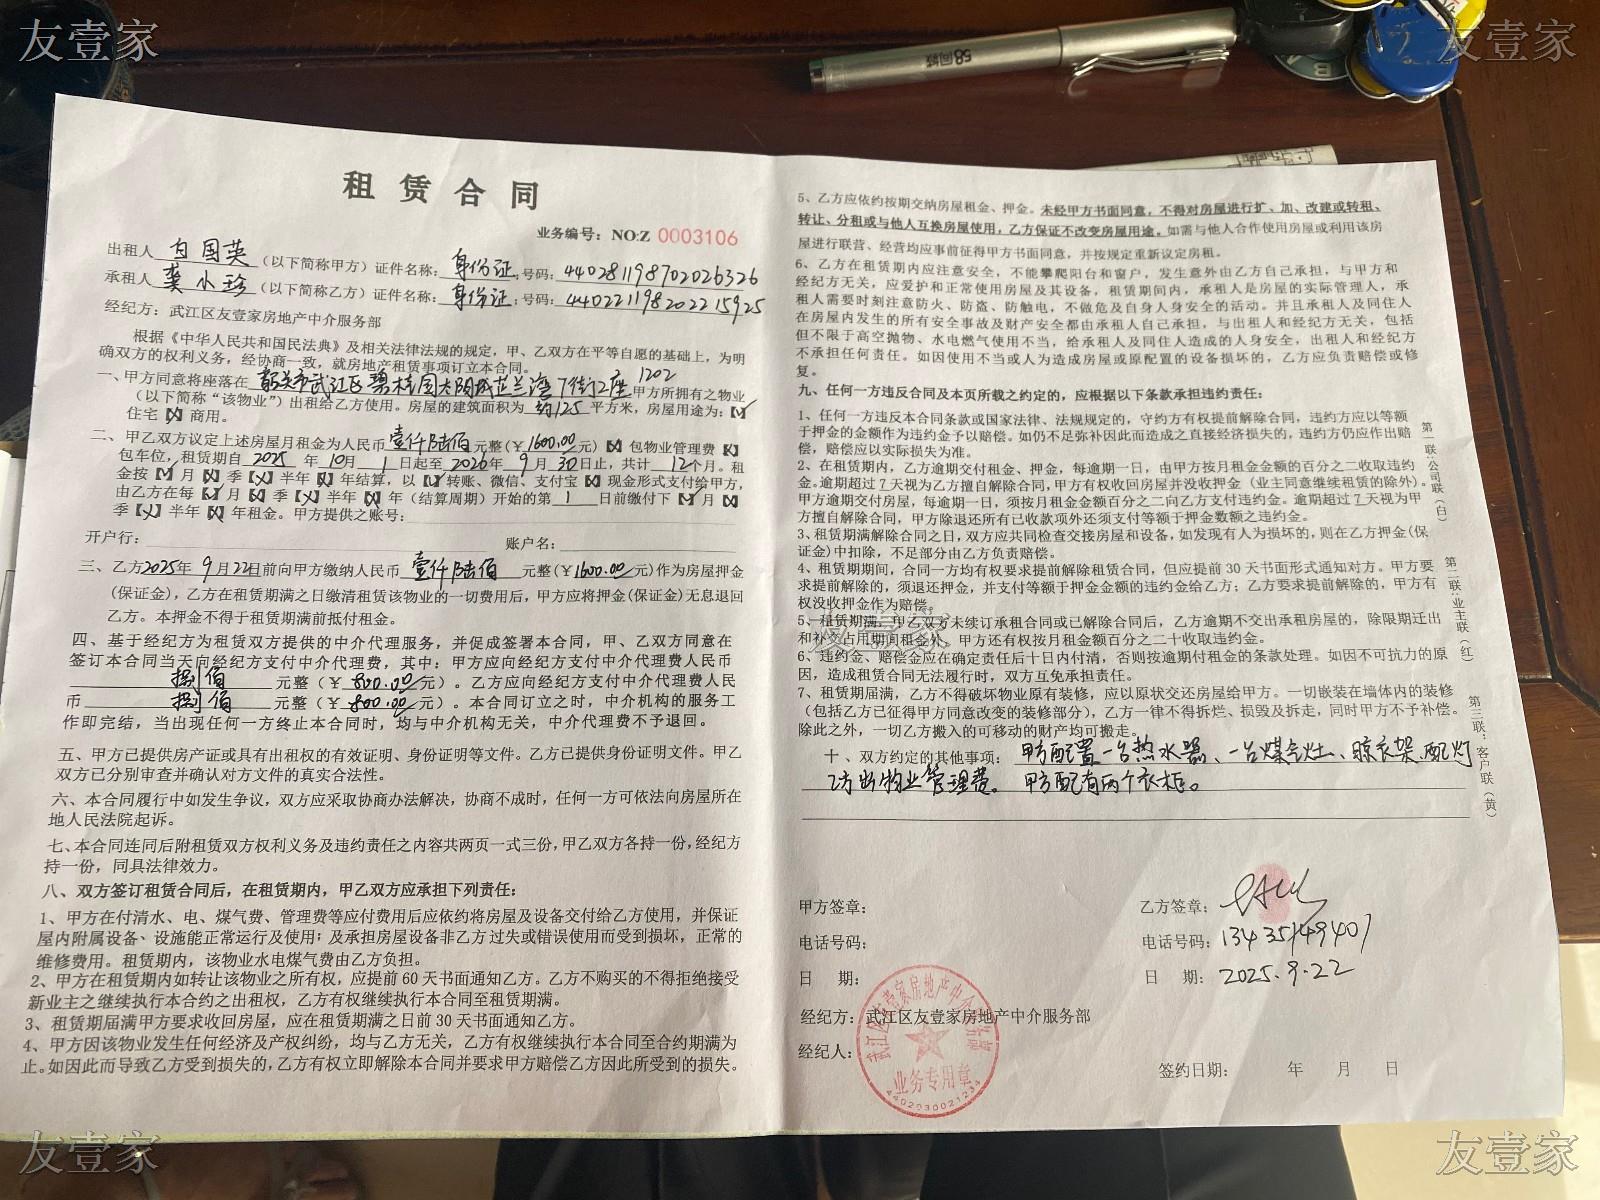 友壹家
友壹家
58同城
租赁合同
业务编号：NO:Z 0003106
出租人 白国英 （以下简称甲方）证件名称：身份证；号码：440281198702026326
承租人 龚小珍 （以下简称乙方）证件名称：身份证；号码：440221198202215925
经纪方：武江区友壹家房地产中介服务部
根据《中华人民共和国民法典》及相关法律法规的规定，甲、乙双方在平等自愿的基础上，为明
确双方的权利义务，经协商一致，就房地产租赁事项订立本合同。
一、甲方同意将座落在 韶关市武江区碧桂园太阳城芷兰湾7街2座1202 甲方所拥有之物业
（以下简称“该物业”）出租给乙方使用。房屋的建筑面积为 约125 平方米，房屋用途为：【✓】
住宅【✗】商用。
二、甲乙双方议定上述房屋月租金为人民币 壹仟陆佰 元整（￥1600.00元）【✗】包物业管理费【✗】
包车位，租赁期自 2025 年 10月 1 日起至 2026年 9 月 30日止，共计 12个月。租
金按【✓】月【✗】季【✗】半年【✗】年结算，以【✓】转账、微信、支付宝【✗】现金形式支付给甲方，
由乙方在每【✓】月【✗】季【✗】半年【✗】年（结算周期）开始的第 1 日前缴付下【✓】月【✗】
季【✗】半年【✗】年租金。甲方提供之账号：
开户行： 账户名：
三、乙方2025年 9月22日前向甲方缴纳人民币 壹仟陆佰 元整（￥1600.00元）作为房屋押金
（保证金），乙方在租赁期满之日缴清租赁该物业的一切费用后，甲方应将押金(保证金)无息退回
乙方。本押金不得于租赁期满前抵付租金。
四、基于经纪方为租赁双方提供的中介代理服务，并促成签署本合同，甲、乙双方同意在
签订本合同当天向经纪方支付中介代理费，其中：甲方应向经纪方支付中介代理费人民币
捌佰 元整（￥800.00元）。乙方应向经纪方支付中介代理费人民
币 捌佰 元整（￥800.00元）。本合同订立之时，中介机构的服务工
作即完结，当出现任何一方终止本合同时，均与中介机构无关，中介代理费不予退回。
五、甲方已提供房产证或具有出租权的有效证明、身份证明等文件。乙方已提供身份证明文件。甲乙
双方已分别审查并确认对方文件的真实合法性。
六、本合同履行中如发生争议，双方应采取协商办法解决，协商不成时，任何一方可依法向房屋所在
地人民法院起诉。
七、本合同连同后附租赁双方权利义务及违约责任之内容共两页一式三份，甲乙双方各持一份，经纪方
持一份，同具法律效力。
八、双方签订租赁合同后，在租赁期内，甲乙双方应承担下列责任：
1、甲方在付清水、电、煤气费、管理费等应付费用后应依约将房屋及设备交付给乙方使用，并保证
屋内附属设备、设施能正常运行及使用；及承担房屋设备非乙方过失或错误使用而受到损坏，正常的
维修费用。租赁期内，该物业水电煤气费由乙方负担。
2、甲方在租赁期内如转让该物业之所有权，应提前60天书面通知乙方。乙方不购买的不得拒绝接受
新业主之继续执行本合约之出租权，乙方有权继续执行本合同至租赁期满。
3、租赁期届满甲方要求收回房屋，应在租赁期满之日前30天书面通知乙方。
4、甲方因该物业发生任何经济及产权纠纷，均与乙方无关，乙方有权继续执行本合同至合约期满为
止。如因此而导致乙方受到损失的，乙方有权立即解除本合同并要求甲方赔偿乙方因此所受到的损失。
5、乙方应依约按期交纳房屋租金、押金。未经甲方书面同意，不得对房屋进行扩、加、改建或转租、
转让、分租或与他人互换房屋使用，乙方保证不改变房屋用途。如需与他人合作使用房屋或利用该房
屋进行联营、经营均应事前征得甲方书面同意，并按规定重新议定房租。
6、乙方在租赁期内应注意安全，不能攀爬阳台和窗户，发生意外由乙方自己承担，与甲方和
经纪方无关，应爱护和正常使用房屋及其设备，租赁期间内，承租人是房屋的实际管理人，承
租人需要时刻注意防火、防盗、防触电，不做危及自身人身安全的活动。并且承租人及同住人
在房屋内发生的所有安全事故及财产安全都由承租人自己承担，与出租人和经纪方无关，包括
但不限于高空抛物、水电燃气使用不当，给承租人及同住人造成的人身安全，出租人和经纪方
不承担任何责任。如因使用不当或人为造成房屋或原配置的设备损坏的，乙方应负责赔偿或修
复。
九、任何一方违反合同及本页所载之约定的，应根据以下条款承担违约责任：
1、任何一方违反本合同条款或国家法律、法规规定的，守约方有权提前解除合同，违约方应以等额
于押金的金额作为违约金予以赔偿。如仍不足弥补因此而造成之直接经济损失的，违约方仍应作出赔
偿，赔偿应以实际损失为准。
2、在租赁期内，乙方逾期交付租金、押金，每逾期一日，由甲方按月租金金额的百分之二收取违约
金。逾期超过7天视为乙方擅自解除合同，甲方有权收回房屋并没收押金（业主同意继续租赁的除外）。
甲方逾期交付房屋，每逾期一日，须按月租金金额百分之二向乙方支付违约金。逾期超过7天视为甲
方擅自解除合同，甲方除退还所有已收款项外还须支付等额于押金数额之违约金。
3、租赁期满解除合同之日，双方应共同检查交接房屋和设备，如发现有人为损坏的，则在乙方押金(保
证金)中扣除，不足部分由乙方负责赔偿。
4、租赁期期间，合同一方均有权要求提前解除租赁合同，但应提前30天书面形式通知对方。甲方要
求提前解除的，须退还押金，并支付等额于押金金额的违约金给乙方；乙方要求提前解除的，甲方有
权没收押金作为赔偿。
5、租赁期满，甲乙双方未续订承租合同或已解除合同后，乙方逾期不交出承租房屋的，除限期迁出
和补交占用期间租金外，甲方还有权按月租金额百分之二十收取违约金。
友壹家
6、违约金、赔偿金应在确定责任后十日内付清，否则按逾期付租金的条款处理。如因不可抗力的原
因，造成租赁合同无法履行时，双方互免承担责任。
7、租赁期届满，乙方不得破坏物业原有装修，应以原状交还房屋给甲方。一切嵌装在墙体内的装修
（包括乙方已征得甲方同意改变的装修部分），乙方一律不得拆烂、损毁及拆走，同时甲方不予补偿。
除此之外，一切乙方搬入的可移动的财产均可搬走。
十、双方约定的其他事项：甲方配置一台热水器、一台煤气灶、晾衣架、配灯
乙方出物业管理费。甲方配有两个衣柜。
第一联：公司联（白）
第二联：业主联（红）
第三联：客户联（黄）
甲方签章： 乙方签章：
电话号码： 电话号码：13435149407
日 期： 日 期：2025.9.22
经纪方：武江区友壹家房地产中介服务部
经纪人：
签约日期： 年 月 日
武江区友壹家房地产中介服务部
业务专用章
4402030021234
友壹家
友壹家